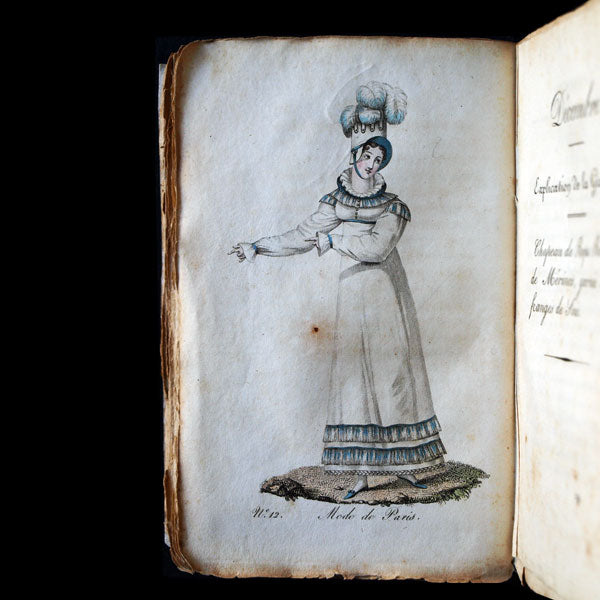 N.º 12. Mode de Paris.
Décembre
Explication de la
Chapeau de
de Mérinos,
franges de